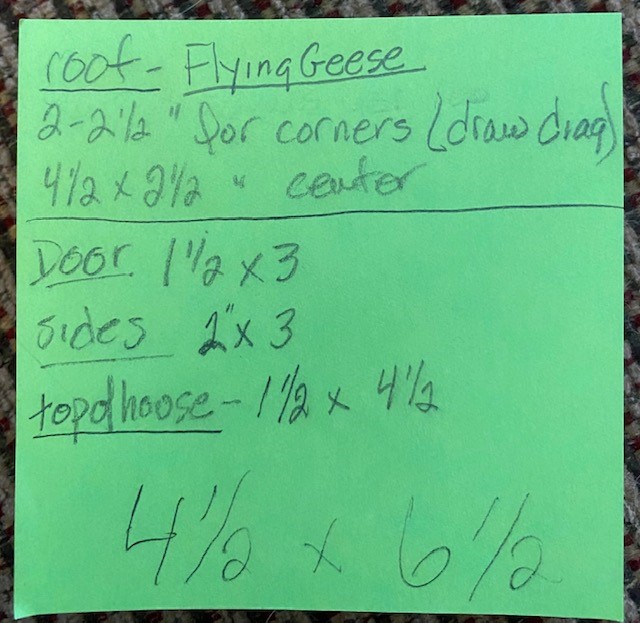 roof - Flying Geese
2-2 1/2" for corners (draw diag)
4 1/2 x 2 1/2 " center
Door 1 1/2 x 3
sides 2" x 3
topofhoose - 1 1/2 x 4 1/2
4 1/2 x 6 1/2